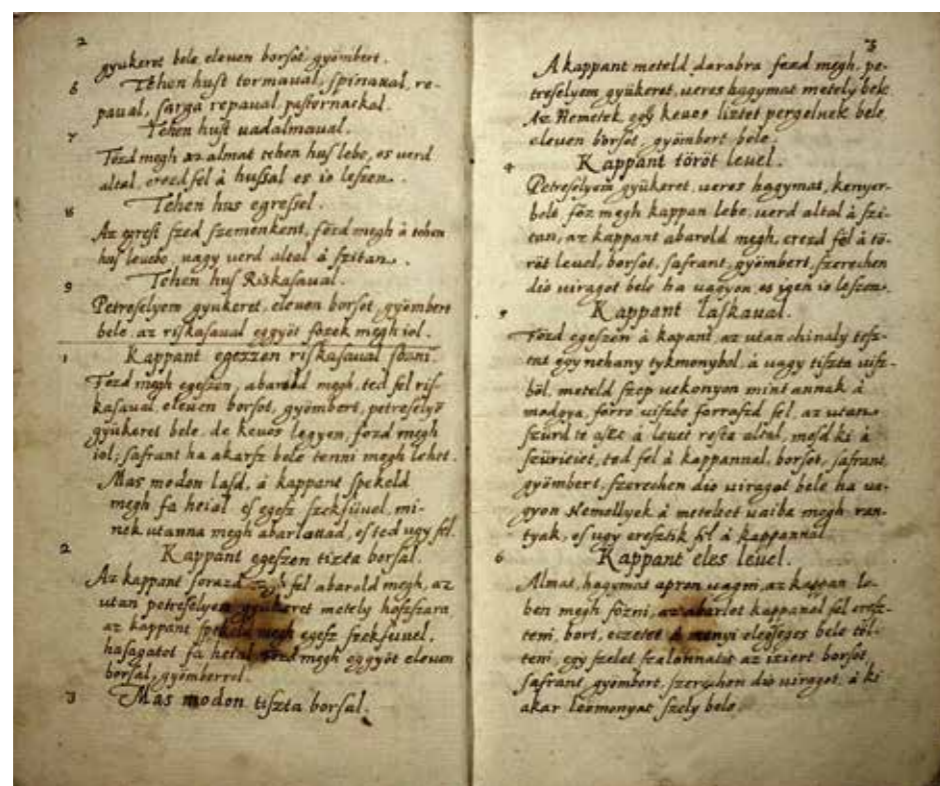 2
gyukeret bele eleuen borsot gyömbert.
6 Tehen huſt tormaual, ſpinaxal, re-
paual, ſarga repaual paſtornackal.
7 Tehen huſt uadalmaual.
Főzd megh az almat tehen huſ lebe, es uerd
altal, erezd fel à huſſal es io leſzen.
8 Tehen hus egreſſel.
Az egreſt ſzed ſzemenkent, főzd megh à tehen
huſ leuebe, uagy uerd altal à ſzitan.
9 Tehen huſ Riskaſaual.
Petreſelyem gyukeret, eleuen borſot, gyömbert
bele, az riſkaſaual eggyöt főzek megh iol.
1 Kappant egezzen riſkaſaual főzni.
Főzd megh egeſzen, abarold megh, ted fel riſ-
kaſaual, eleuen borſot, gyömbert, petreſelyő
gyükeret bele, de keues legyen, főzd megh
iol, ſafrant ha akarſz bele tenni megh lehet.
Mas modon laſd, à kappant ſpekeld
megh fa heial eſ egeſz ſzekfüuel, mi-
nek utanna megh abarlattad, eſ ted ugy fel.
2 Kappant egeſzen tizta borſal.
Az kappant forazd fel abarold megh, az
utan petreſelyem gyükeret metely hoſzſzara
az kappant ſpekeld megh egeſz ſzekfüuel,
haſagatot fa heial, főzd megh eggyöt eleuen
borſal, gyömberrel.
3 Mas modon tiſzta borſal.
3
A kappant meteld darabra fezd megh, pe-
treſelyem gyükeret, ueres hagymat metely bele
Az Nemetek egy keues liztet pergelnek bele,
eleuen borſot, gyömbert bele.
4 Kappant töröt leuel.
Petreſelyem gyükeret, ueres hagymat, kenyer-
belt, főz megh kappan lebe, uerd altal à ſzi-
tan, az kappant abarold megh, erezd fel à tö-
röt leuel, borſot, ſafrant, gyömbert, ſzerechen
dio uiragot bele ha uagyon, es igen io leſzen.
5 Kappant laſkaual.
Főzd egeſzen à kapant, az utan chinaly teſz-
tat egy nehany tykmonybol, à uagy tiſzta uiſz-
ból, meteld ſzep uekonyon mint annak à
modgya, forro uiſzbe forraſzd fel, az utan
ſzürd le à leuet roſta altal, moſd ki à
ted fel à kappannal, borſot, ſafrant,
gyömbert, ſzerechen dio uiragot bele ha ua-
gyon Nemellyek à metéltet uaiba megh ran-
tyak, eſ ugy eresztik fel à kappannal
6 Kappant eles leuel.
Almat, hagymat apron uagni, az kappan le-
ben megh főzni, az abarlot kappanal fel erefz-
teni, bort, eczetet à menyi elegſeges bele töl-
teni, egy ſzelet ſzalonnatis az iziert borſot,
ſafrant gyömbert, ſzerechen dio uiragot, à ki
akar leemonyat ſzely bele.